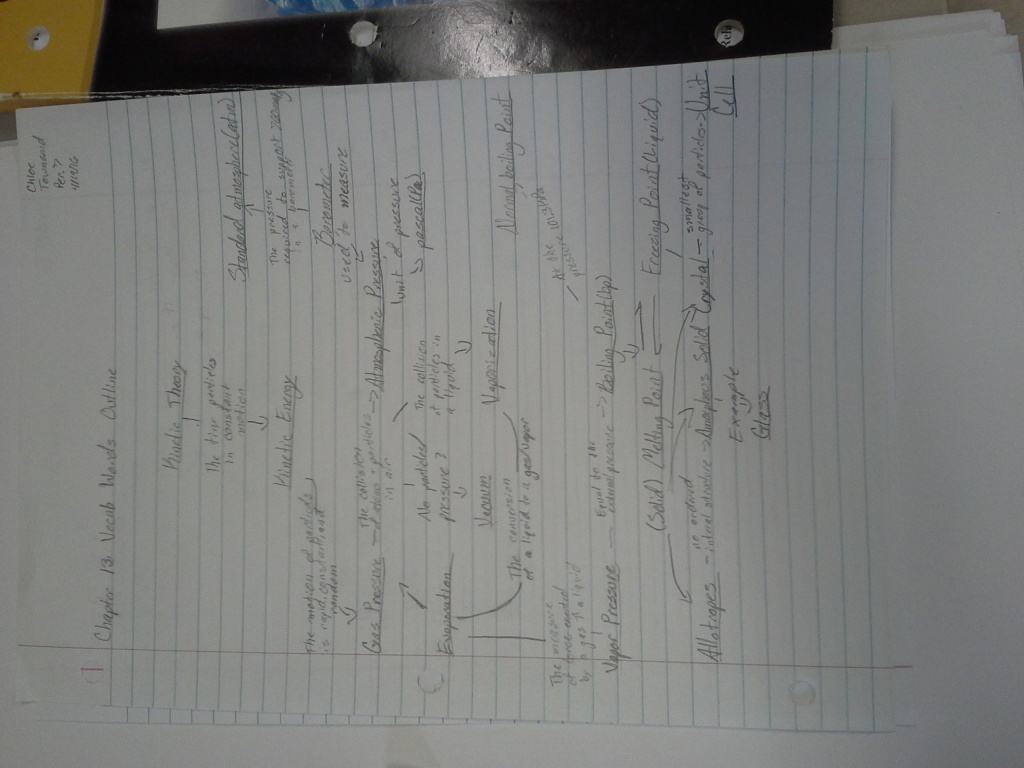 Chloe
Townsend
Per. 7
Chapter 13 Vocab Words Outline
Kinetic Theory
The tiny particles
in constant
motion
Kinetic Energy
Standard atmosphere (atm)
The pressure
required to support 760mmHg
in a barometer
The motion of particles
is rapid, constant, and
random
Barometer
used to measure
Gas Pressure - The collision of particles in air -> Atmospheric Pressure
unit of pressure
-> pascal (Pa)
No particles/
pressure?
The collision
of particles in
a liquid
Evaporation
Vacuum
Vaporization
Normal boiling Point
The conversion
of a liquid to a gas/vapor
At the
pressure 101.3kPa
The measure
of force exerted
by a gas of a liquid
Vapor Pressure - Equal to the external pressure -> Boiling Point (bp)
(Solid) Melting Point
Freezing Point (liquid)
Allotropes - no ordered internal structure -> Amorphous Solid
Crystal - smallest group of particles -> Unit
Cell
Example
Glass